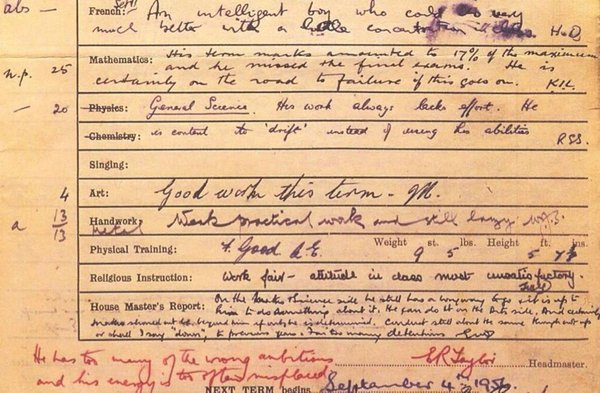 abs —
French: An intelligent boy who could do very
much better with a little concentration in class
Mathematics: His term marks amounted to 17% of the maximum
n.p. 25 and he missed the final exams. He is
certainly on the road to failure if this goes on. K.I.L.
— 20 Physics: General Science. His work always lacks effort. He
Chemistry: is content to 'drift' instead of using his abilities RSS.
Singing:
4 Art: Good work this term -
a 13/13 Handwork: Metal Weak practical work and still lazy
Physical Training: V. Good A.E. Weight 9 st. 5 lbs. Height 5 ft. 7½ ins.
Religious Instruction: Work fair - attitude in class most unsatisfactory.
House Master's Report: On the Science side he still has a long way to go & it is up to
him to do something about it. He can do it on the Arts side, and certainly
should not be beyond him if only he is determined. Conduct still about the same throughout
or shall I say "down", to previous years. Far too many detentions
He has too many of the wrong ambitions E R Taylor Headmaster.
and his energy is too often misplaced
NEXT TERM begins September 4th 1956